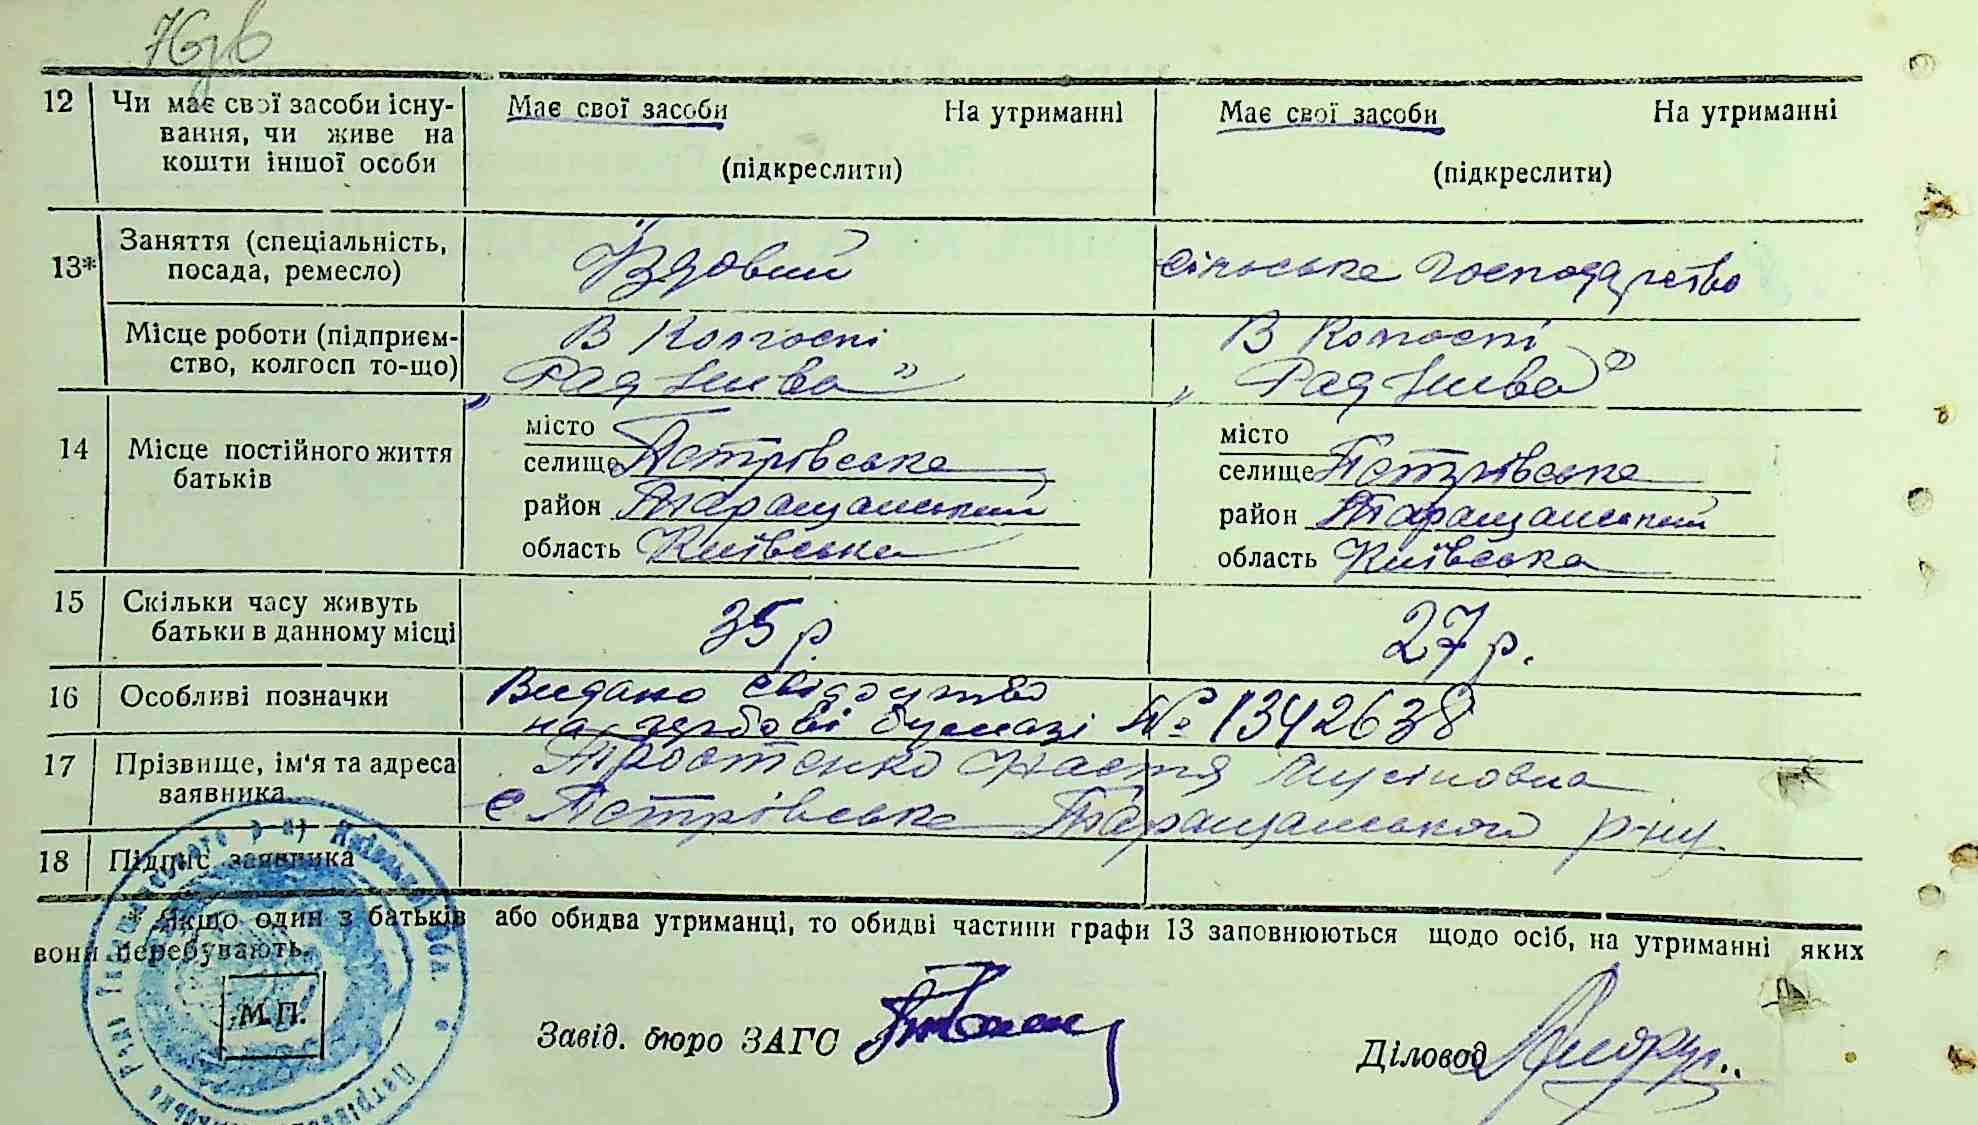 12 Чи має свої засоби існу- Має свої засоби На утриманні Має свої засоби На утриманні
вання, чи живе на
кошти іншої особи (підкреслити) (підкреслити)
13* Заняття (спеціальність, Їздовий сільське господарство
посада, ремесло)
Місце роботи (підприєм- В Колгоспі В Колгоспі
ство, колгосп то-що) „Рад Нива" „Рад Нива"
14 Місце постійного життя місто місто
батьків селище Петрівське селище Петрівське
район Таращанський район Таращанський
область Київська область Київська
15 Скільки часу живуть 35 р. 27 р.
батьки в данному місці
16 Особливі позначки Видано свідоцтво
на гербові бумазі № 1342638
17 Прізвище, ім'я та адреса Тростенко Настя
заявника с Петрівське Таращанського р-ну
18 Підпис заявника
* Якщо один з батьків або обидва утриманці, то обидві частини графи 13 заповнюються щодо осіб, на утриманні яких
вони перебувають.
М.П.
Завід. бюро ЗАГС Діловод